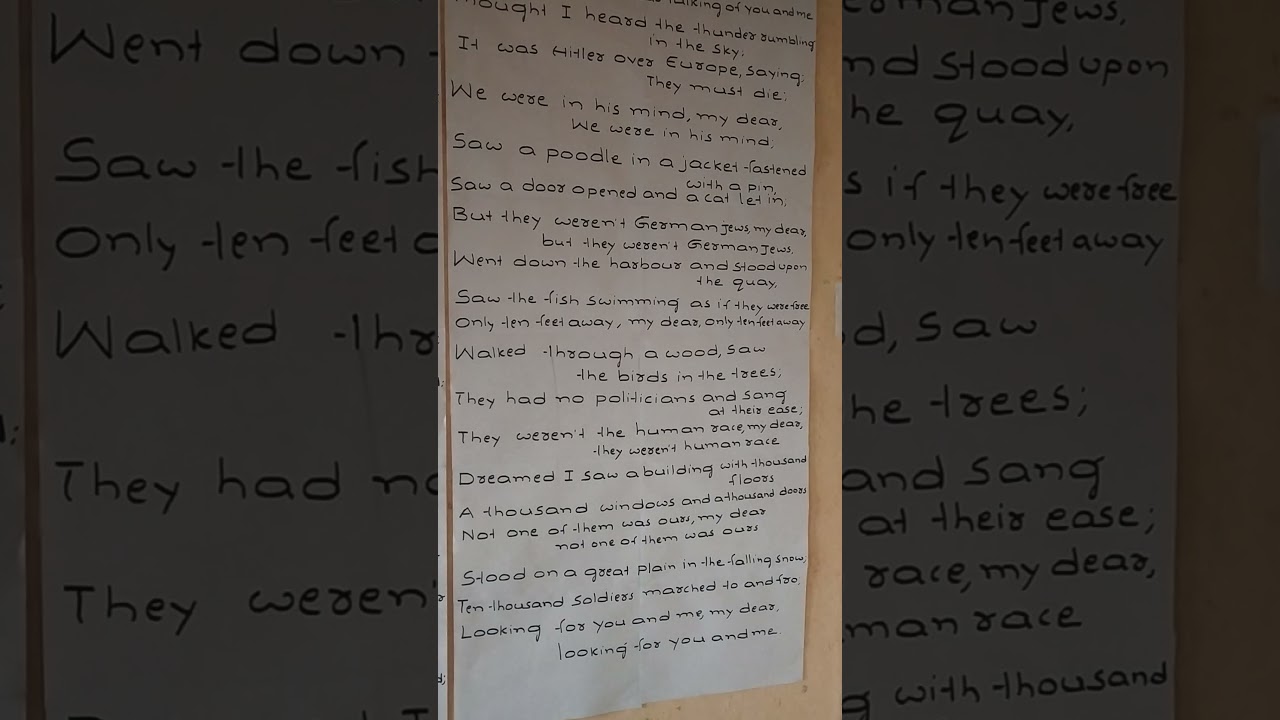 talking of you and me
thought I heard the thunder rumbling
in the sky;
It was Hitler over Europe, saying:
They must die;
We were in his mind, my dear,
We were in his mind;
Saw a poodle in a jacket fastened
with a pin,
Saw a door opened and a cat let in;
But they weren't German Jews, my dear,
but they weren't German Jews.
Went down the harbour and stood upon
the quay,
Saw the fish swimming as if they were free
Only ten feet away, my dear, only ten feet away
Walked through a wood, saw
the birds in the trees;
They had no politicians and sang
at their ease;
They weren't the human race, my dear,
they weren't human race
Dreamed I saw a building with thousand
floors
A thousand windows and a thousand doors
Not one of them was ours, my dear
not one of them was ours
Stood on a great plain in the falling snow;
Ten thousand soldiers marched to and fro,
Looking for you and me, my dear,
looking for you and me.